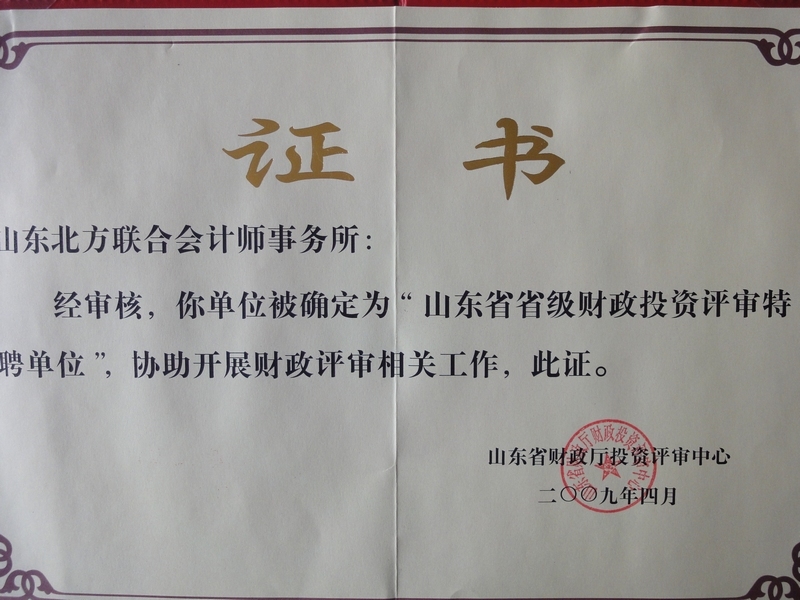 证书
山东北方联合会计师事务所：
经审核，你单位被确定为“山东省省级财政投资评审特
聘单位”，协助开展财政评审相关工作，此证。
山东省财政厅投资评审中心
二〇〇九年四月
山东省财政厅财政投资评审中心